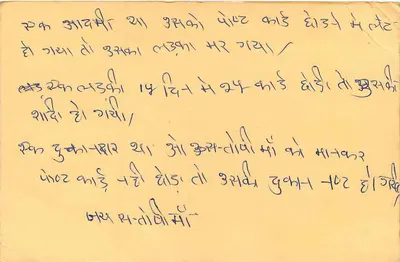 एक आदमी था उसको पोष्ट कार्ड छोडने मे लेट
हो गया तो उसका लड़का मर गया।
एक लड़की १५ दिन मे २५ कार्ड छोड़ी तो उसकी
शादी हो गयी।
एक दुकानदार था ओ सन्तोषी माँ को मानकर
पोष्ट कार्ड नही छोड़ा तो उसकी दुकान नष्ट हो गयी
जय सन्तोषी माँ